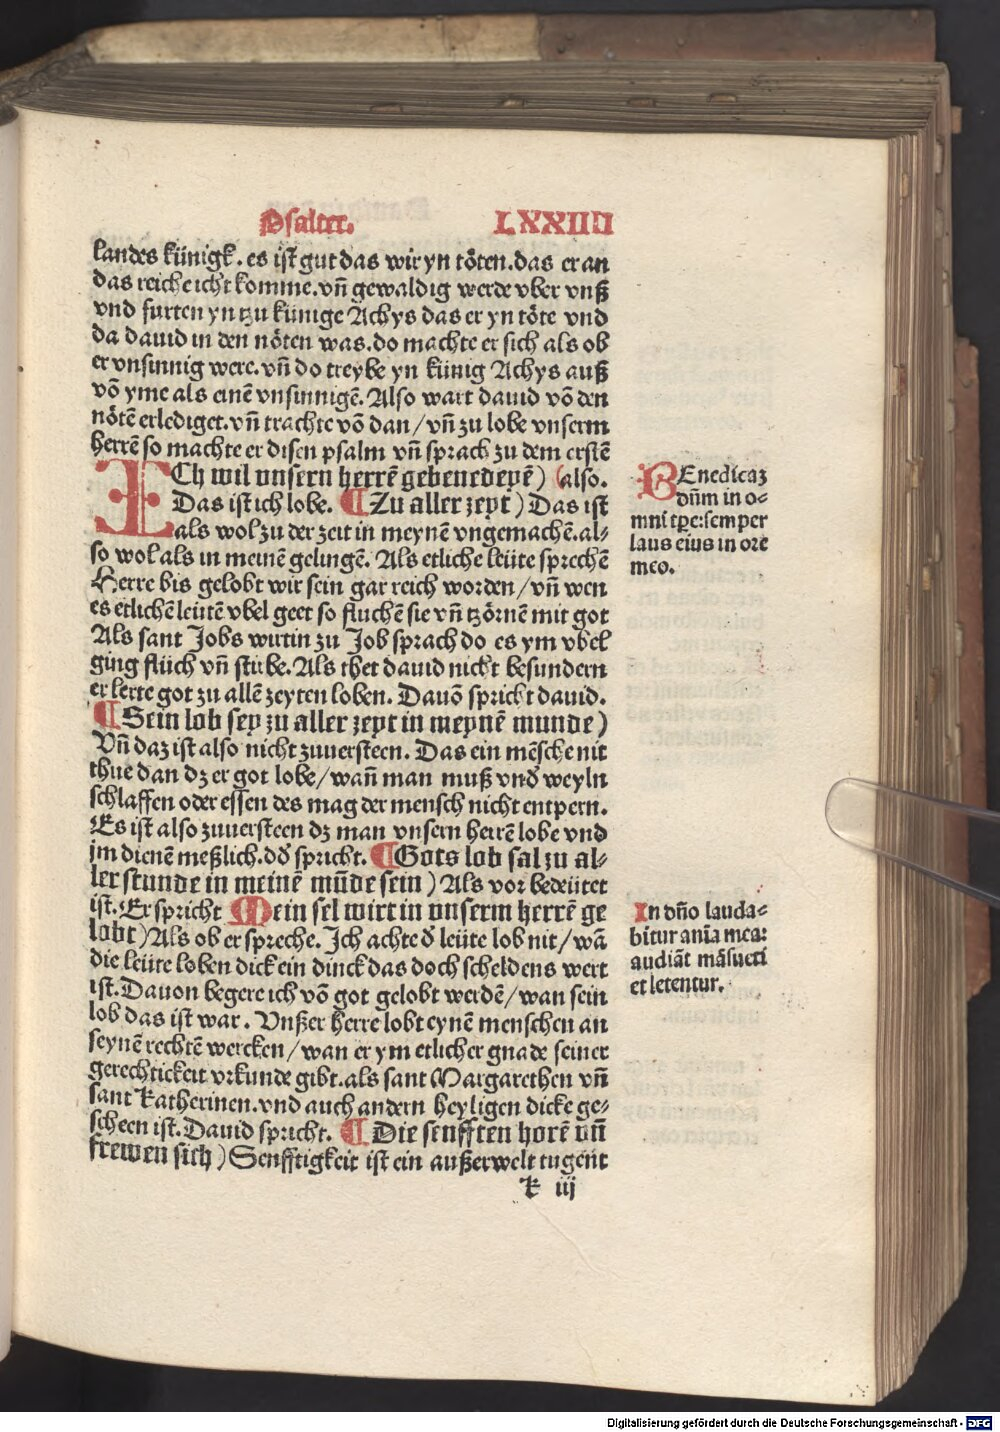 Psalter. LXXIIII
landes künigk. es ist gut das wir yn töten. das er an
das reiche icht komme. vn̄ gewaldig werde vber vnß
vnd furten yn tzu künige Achys das er yn töte vnd
da dauid in den nöten was. do machte er sich als ob
er vnsinnig were. vn̄ do treybe yn künig Achys auß
võ yme als einē vnsinnigē. Also wart dauid võ den
nötē erlediget. vn̄ trachte võ dan / vn̄ zu lobe vnserm
herrē so machte er disen psalm vn̄ sprach zu dem erstē
ICh wil vnsern herrē gebenedeyē) (also.
Das ist ich lobe. ¶ Zu aller zeyt) Das ist
als wol zu der zeit in meynē vngemachē. al⸗
so wol als in meinē gelingē. Als etliche leüte sprechē
Herre bis gelobt wir sein gar reich worden / vn̄ wen
es etlichē leutē vbel geet so fluchē sie vn̄ tzörnē mit got
Als sant Jobs wirtin zu Job sprach do es ym vbel
ging flüch vn̄ stirbe. Als thet dauid nicht besundern
er lerte got zu allē zeyten loben. Dauõ spricht dauid.
¶ Sein lob sey zu aller zeyt in meynē munde)
Vn̄ daz ist also nicht zuuersteen. Das ein mēsche nit
thue dan dz er got lobe / wan̄ man muß vnd̕ weyln
schlaffen oder essen des mag der mensch nicht entpern.
Es ist also zuuersteen dz man vnsern herrē lobe vnd
jm dienē meßlich. dd̕ spricht. ¶ Gots lob sal zu al⸗
ler stunde in meinē mūde sein) Als vor bedeütet
ist. Er spricht Mein sel wirt in vnserm herrē ge
lobt) Als ob er spreche. Ich achte d̕ leüte lob nit / wā
die leüte loben dick ein dinck das doch scheldens wert
ist. Dauon begere ich võ got gelobt werdē / wan sein
lob das ist war. Vnßer herre lobt eynē menschen an
seynē rechtē wercken / wan er ym etlicher gnade seiner
gerechtickeit vrkunde gibt. als sant Margarethen vn̄
sant Katherinen. vnd auch andern heyligen dicke ge⸗
scheen ist. Dauid spricht. ¶ Die senfften horē vn̄
frewen sich) Senfftigkeit ist ein außerwelt tugent
k iij
BEnedicaz
dn̄m in o⸗
mni tp̄e: semper
laus eius in ore
meo.
In dn̄o lauda⸗
bitur anīa mea:
audiāt māsueti
et letentur.
Digitalisierung gefördert durch die Deutsche Forschungsgemeinschaft - DFG